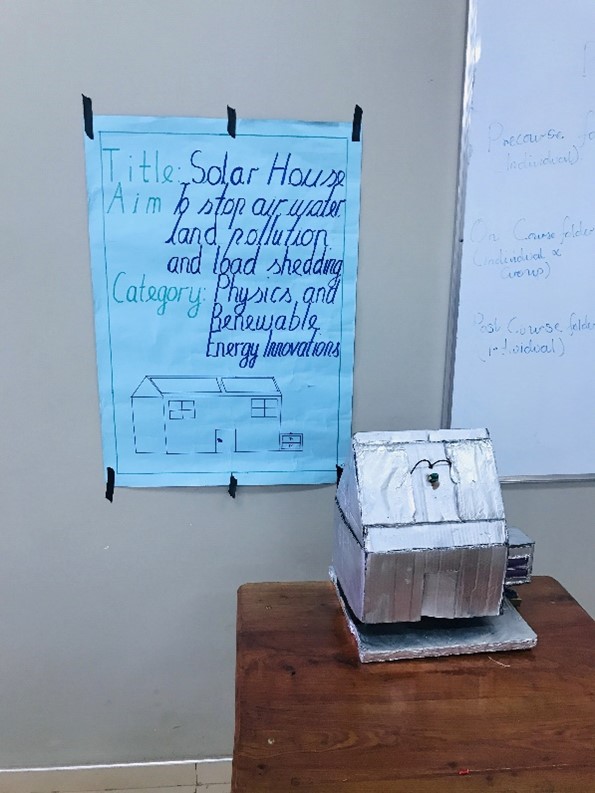 Title: Solar House
Aim To stop air, water
land pollution
and load shedding
Category: Physics and
Renewable
Energy Innovations
Precourse fo
(Individual)
On Course folder
(individual x
Post Course folder
(individual)